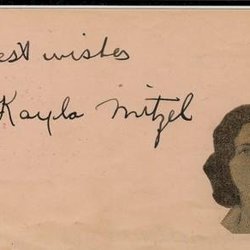 est wishes
Kayla Mitzel